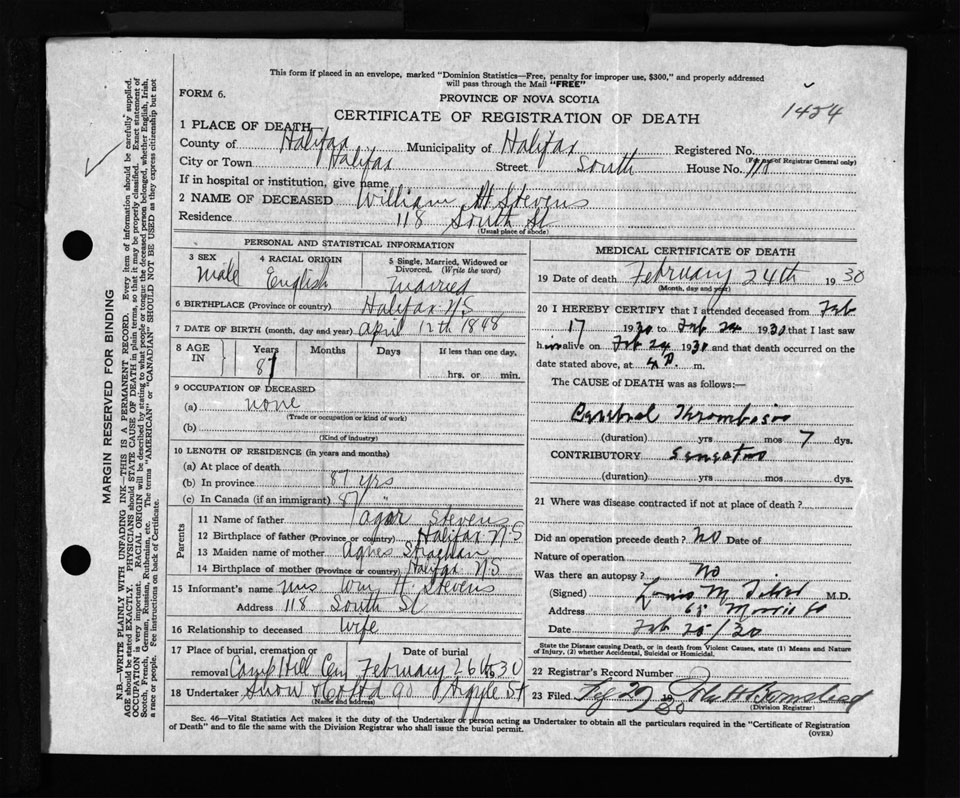 This form if placed in an envelope, marked "Dominion Statistics—Free, penalty for improper use, $300," and properly addressed
will pass through the Mail "FREE"
FORM 6.
PROVINCE OF NOVA SCOTIA
1454
CERTIFICATE OF REGISTRATION OF DEATH
1 PLACE OF DEATH
County of Halifax Municipality of Halifax Registered No.
(For use of Registrar General only)
City or Town Halifax Street South House No. 118
If in hospital or institution, give name
2 NAME OF DECEASED William H. Stevens
Residence 118 South St
(Usual place of abode)
PERSONAL AND STATISTICAL INFORMATION
3 SEX Male
4 RACIAL ORIGIN English
5 Single, Married, Widowed or Divorced. (Write the word) Married
6 BIRTHPLACE (Province or country) Halifax N S
7 DATE OF BIRTH (month, day and year) April 12th 1848
8 AGE IN Years Months Days If less than one day,
81 hrs. or min.
9 OCCUPATION OF DECEASED
(a) none
(Trade or occupation or kind of work)
(b)
(Kind of industry)
10 LENGTH OF RESIDENCE (in years and months)
(a) At place of death
(b) In province 81 yrs
(c) In Canada (if an immigrant) 81 "
Parents
11 Name of father Stevens
12 Birthplace of father (Province or country) Halifax N S
13 Maiden name of mother Agnes Strachan
14 Birthplace of mother (Province or country) Halifax N S
15 Informant's name Mrs Wm H. Stevens
Address 118 South St
16 Relationship to deceased Wife
17 Place of burial, cremation or removal Camp Hill Cem
Date of burial February 26th 30
18 Undertaker Snow & Co Argyle St
(Name and address)
MEDICAL CERTIFICATE OF DEATH
19 Date of death February 24th 1930
(Month, day and year)
20 I HEREBY CERTIFY that I attended deceased from Feb
17 1930 to Feb 24 1930 that I last saw
him alive on Feb 24 1930 and that death occurred on the
date stated above, at 4 P. m.
The CAUSE of DEATH was as follows:—
Cerebral Thrombosis
(duration) yrs mos 7 dys.
CONTRIBUTORY
(duration) yrs mos dys.
21 Where was disease contracted if not at place of death?
Did an operation precede death? No Date of
Nature of operation
Was there an autopsy? No
(Signed) Louis M. M.D.
Address 65 Morris St
Date Feb 25/30
State the Disease causing Death, or in death from Violent Causes, state (1) Means and Nature
of Injury, (2) whether Accidental, Suicidal or Homicidal.
22 Registrar's Record Number
23 Filed 1930
(Division Registrar)
Sec. 46—Vital Statistics Act makes it the duty of the Undertaker or person acting as Undertaker to obtain all the particulars required in the "Certificate of Registration
of Death" and to file the same with the Division Registrar who shall issue the burial permit.
(OVER)
MARGIN RESERVED FOR BINDING
N.B.—WRITE PLAINLY WITH UNFADING INK—THIS IS A PERMANENT RECORD. Every item of information should be carefully supplied.
AGE should be stated EXACTLY. PHYSICIANS should STATE CAUSE OF DEATH in plain terms, so that it may be properly classified. Exact statement of
OCCUPATION is very important. RACIAL ORIGIN will be described by stating to what people or tongue the deceased person belonged, whether English, Irish,
Scotch, French, German, Russian, Ruthenian, etc. The terms "AMERICAN" or "CANADIAN" SHOULD NOT BE USED as they express citizenship but not
a race or people. See instructions on back of Certificate.